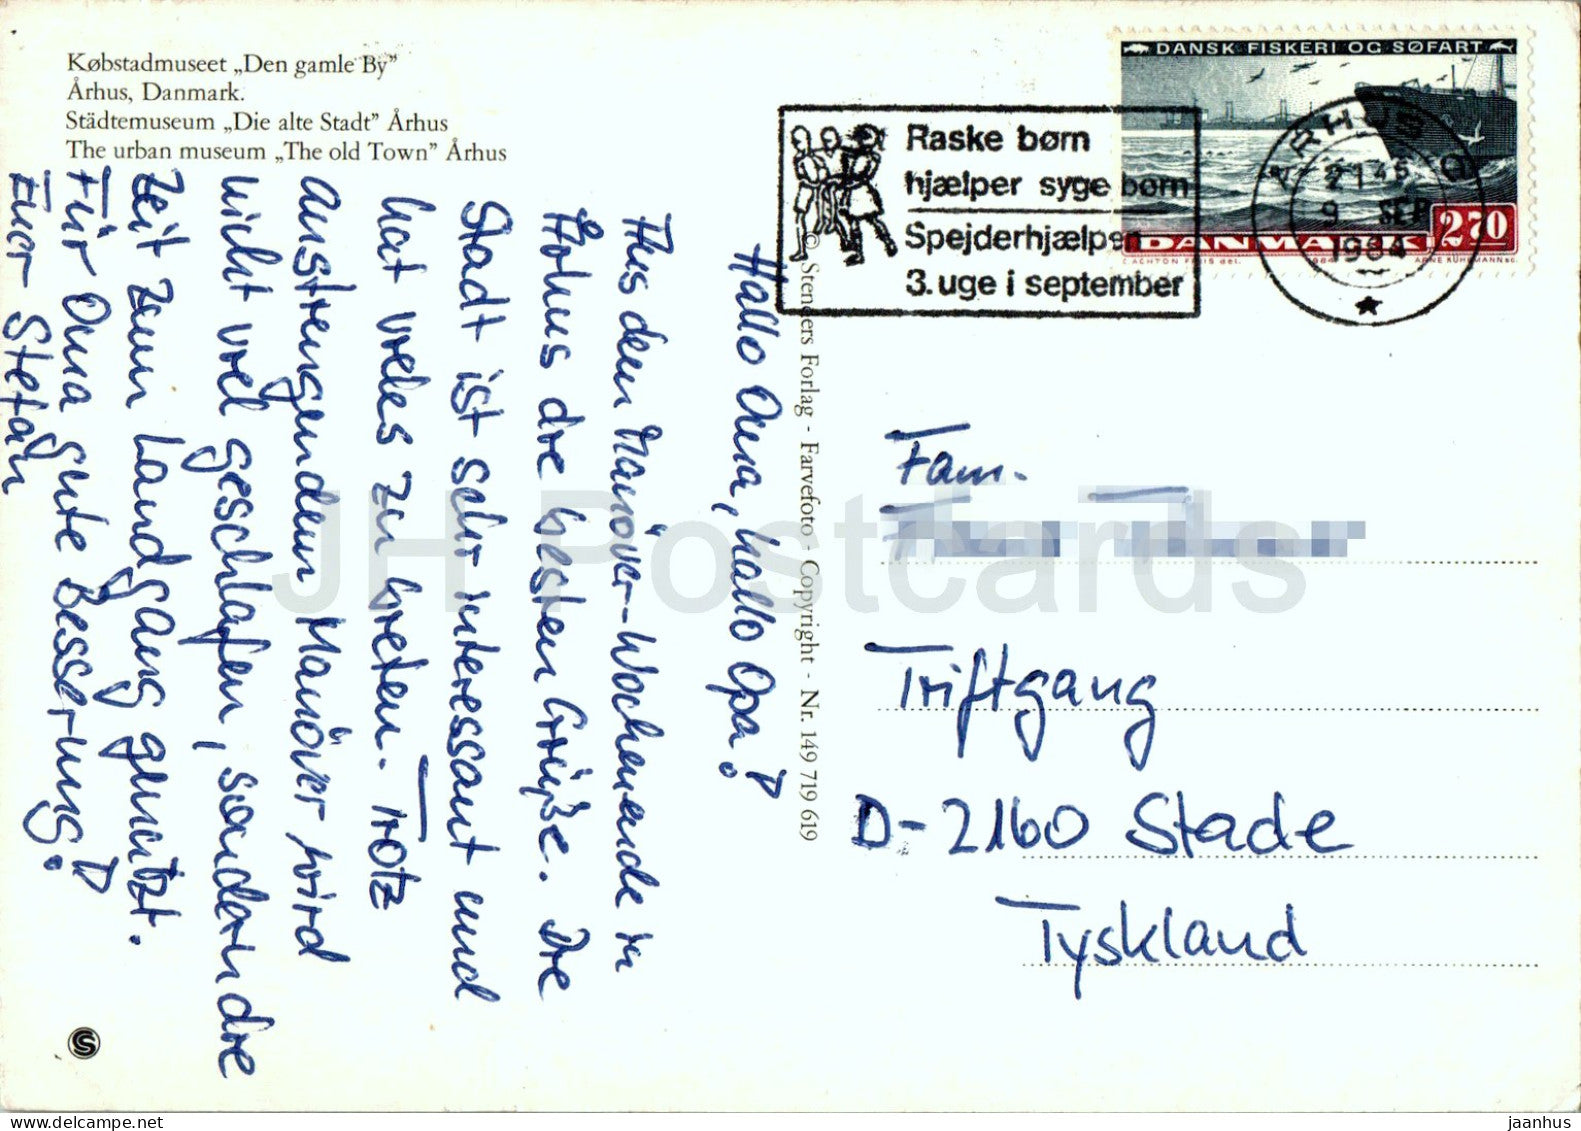 Købstadmuseet „Den gamle By”
Århus, Danmark.
Städtemuseum „Die alte Stadt” Århus
The urban museum „The old Town” Århus
Hallo Oma, hallo Opa!
Aus dem Manöver-Wochenende in
Århus die besten Grüße. Die
Stadt ist sehr interessant und
hat vieles zu bieten. Trotz
anstrengendem Manöver wird
nicht viel geschlafen, sondern die
Zeit zum Landgang genutzt.
Für Oma gute Besserung!
Euer Stefan
© Stenders Forlag - Farvefoto - Copyright - Nr. 149 719 619
Raske børn
hjælper syge børn
Spejderhjælpen
3. uge i september
DANSK FISKERI OG SØFART
DANMARK 270
ÅRHUS C
21 45
9 SEP
1984
Fam.
Triftgang
D-2160 Stade
Tyskland
JH Postcards
jaanhus